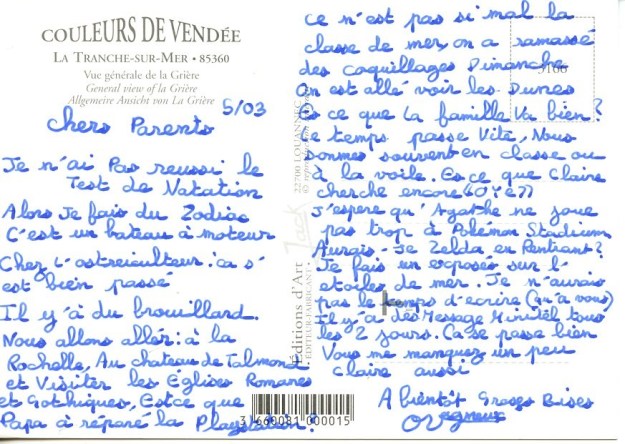 COULEURS DE VENDÉE
LA TRANCHE-SUR-MER • 85360
Vue générale de la Grière
General view of la Grière
Allgemeine Ansicht von La Grière
5/03
Chers Parents
Je n'ai Pas reussi le
Test de Natation
Alors Je fais du Zodiac
C'est un bateau à moteur
Chez l'ostreiculteur : ca s'
est bien passé
Il y'à du brouillard.
Nous allons aller : à la
Rochelle, Au chateau de Talmond
et Visiter les Églises Romanes
et Gothiques, Estce que
Papa à réparé la Playstation ?
22700 LOUANNEC
Jack
Éditions d'Art
ÉDITEUR-FABRICANT
3 1660081 000015
ce n'est pas si mal la
classe de mer, on a ramassé
des coquillages Dimanche
On est allé voir les Dunes
Es ce que la famille va bien ?
Le temps passe Vite, Nous
sommes souvent en classe ou
à la voile. Es ce que Claire
cherche encore
J'espere qu'Agathe ne joue
pas trop à Pokémon Stadium
Aurais-Je Zelda en Rentrant ?
Je fais un exposés sur l'
etoiles de mer. Je n'aurais
pas le temps d'ecrire (qu'a vous)
Il y'a des Message Minitel tous
les 2 jours. Ca se passe bien
Vous me manquez un peu
Claire aussi
A bientôt Grosses Bises